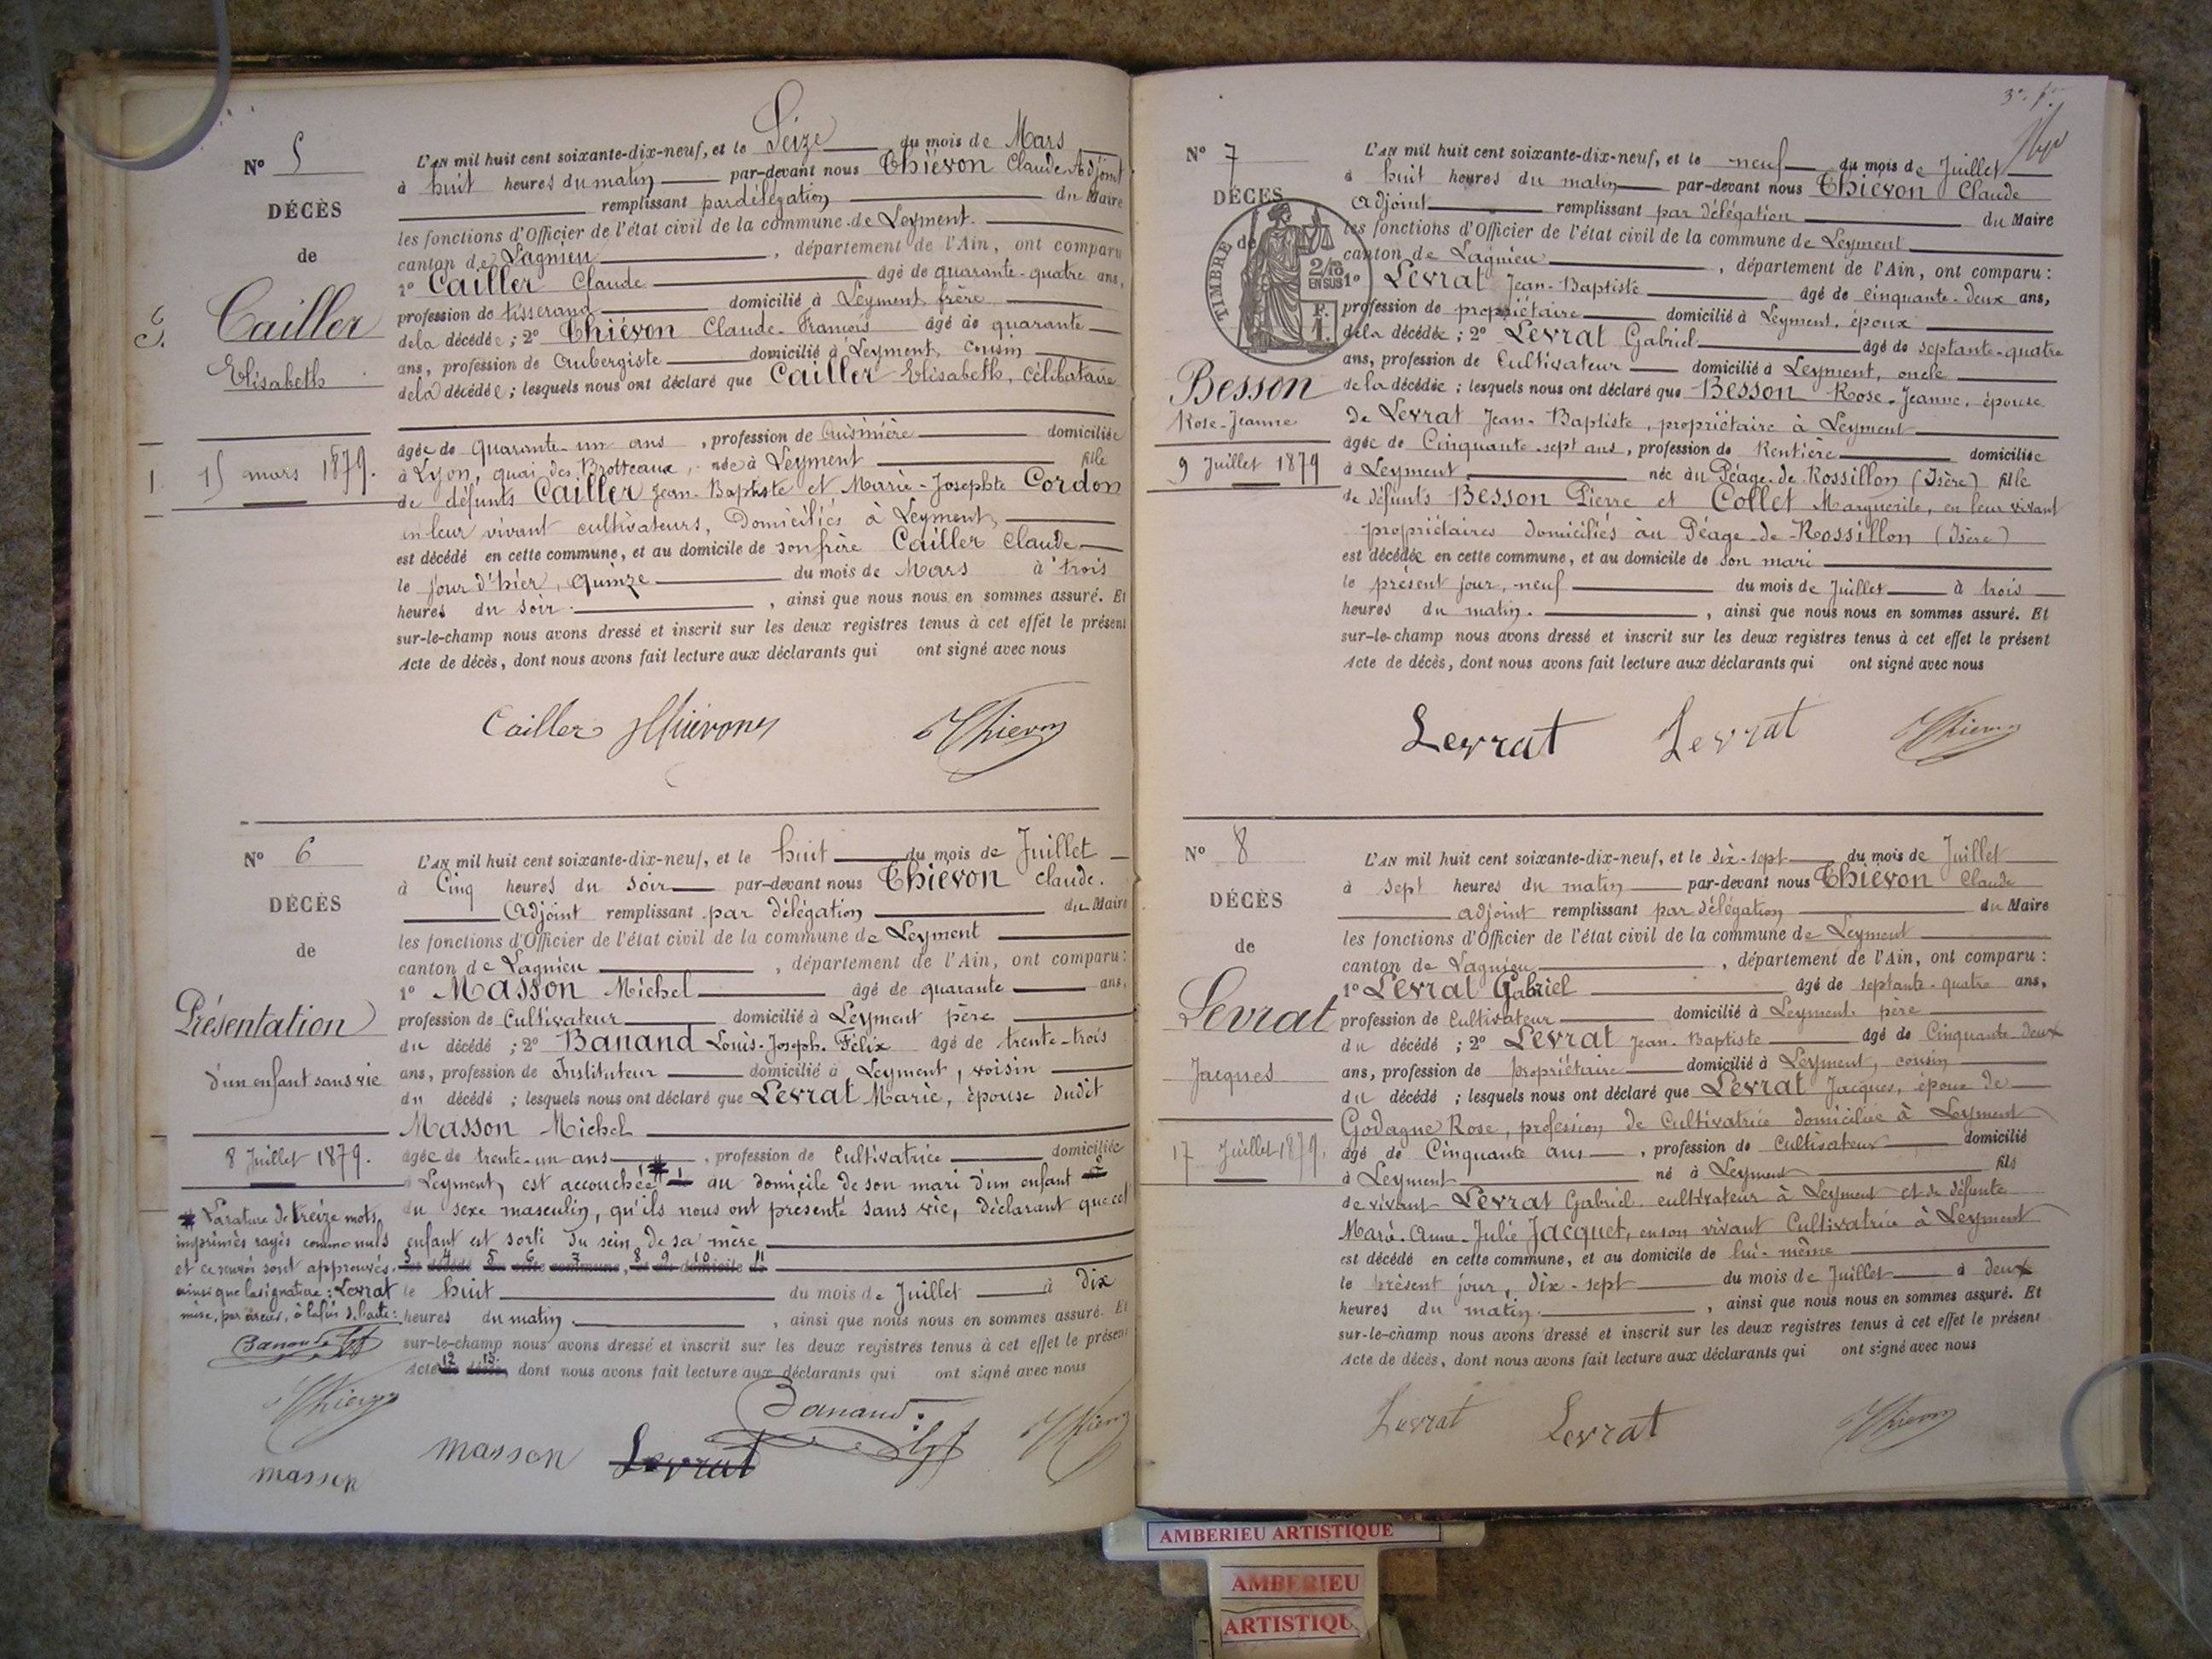 N° 5
DÉCÈS
de
Cailler
Elisabeth
15 mars 1879.
L'AN mil huit cent soixante-dix-neuf, et le Seize du mois de Mars
à huit heures du matin par-devant nous Thiévon Claude Adjoint
remplissant par délégation du Maire
les fonctions d'Officier de l'état civil de la commune de Leyment.
canton de Lagnieu, département de l'Ain, ont comparu
1° Cailler Claude âgé de quarante-quatre ans,
profession de tisserand domicilié à Leyment, frère
de la décédée; 2° Thiévon Claude-François âgé de quarante
ans, profession de Aubergiste domicilié à Leyment, cousin
de la décédée; lesquels nous ont déclaré que Cailler Elisabeth, Célibataire
âgée de Quarante-un ans, profession de Cuisinière domiciliée
à Lyon, quai des Brotteaux, née à Leyment fille
de défunts Cailler Jean-Baptiste et Marie-Josephte Cordon
en leur vivant cultivateurs, Domiciliés à Leyment,
est décédé en cette commune, et au domicile de son frère Cailler Claude
le jour d'hier, quinze du mois de Mars à trois
heures du soir, ainsi que nous nous en sommes assuré. Et
sur-le-champ nous avons dressé et inscrit sur les deux registres tenus à cet effet le présent
Acte de décès, dont nous avons fait lecture aux déclarants qui ont signé avec nous
Cailler Thiévon Thievon
N° 6
DÉCÈS
de
Présentation
d'un enfant sans vie
8 Juillet 1879.
L'AN mil huit cent soixante-dix-neuf, et le huit du mois de Juillet
à Cinq heures du soir par-devant nous Thievon Claude.
Adjoint remplissant par délégation du Maire
les fonctions d'Officier de l'état civil de la commune de Leyment
canton de Lagnieu, département de l'Ain, ont comparu:
1° Masson Michel âgé de quarante ans,
profession de Cultivateur domicilié à Leyment père
du décédé; 2° Banand Louis-Joseph-Félix âgé de trente-trois
ans, profession de Instituteur domicilié à Leyment, voisin
du décédé; lesquels nous ont déclaré que Levrat Marie, épouse dudit
Masson Michel
âgée de trente-un ans, profession de Cultivatrice domiciliée
à Leyment, est accouchée au domicile de son mari d'un enfant
du sexe masculin, qu'ils nous ont présenté sans vie, déclarant que cet
enfant est sorti du sein de sa mère
est décédé en cette commune, et au domicile de
le huit du mois de Juillet à Dix
heures du matin, ainsi que nous nous en sommes assuré. Et
sur-le-champ nous avons dressé et inscrit sur les deux registres tenus à cet effet le présent
Acte de décès, dont nous avons fait lecture aux déclarants qui ont signé avec nous
La rature de treize mots
imprimés rayés comme nuls
et ce renvoi sont approuvés.
ainsi que la signature: Levrat
mise, par erreur, à la fin de l'acte:
Banand
Thievon
masson
masson Levrat Banand Thievon
N° 7
DÉCÈS
de
TIMBRE
2/10
EN SUS
Besson
Rose-Jeanne
9 Juillet 1879
L'AN mil huit cent soixante-dix-neuf, et le neuf du mois de Juillet
à huit heures du matin par-devant nous Thievon Claude
Adjoint remplissant par délégation du Maire
les fonctions d'Officier de l'état civil de la commune de Leyment
canton de Lagnieu, département de l'Ain, ont comparu:
1° Levrat Jean-Baptiste âgé de cinquante-deux ans,
profession de propriétaire domicilié à Leyment, époux
de la décédée; 2° Levrat Gabriel âgé de septante-quatre
ans, profession de Cultivateur domicilié à Leyment, oncle
de la décédée; lesquels nous ont déclaré que Besson Rose-Jeanne, épouse
de Levrat Jean-Baptiste, propriétaire à Leyment
âgée de Cinquante-sept ans, profession de Rentière domiciliée
à Leyment née au Péage-de-Rossillon (Isère) fille
de défunts Besson Pierre et Collet Marguerite, en leur vivant
propriétaires domiciliés au Péage-de-Rossillon (Isère)
est décédée en cette commune, et au domicile de son mari
le présent jour, neuf du mois de Juillet à trois
heures du matin, ainsi que nous nous en sommes assuré. Et
sur-le-champ nous avons dressé et inscrit sur les deux registres tenus à cet effet le présent
Acte de décès, dont nous avons fait lecture aux déclarants qui ont signé avec nous
Levrat Levrat Thievon
N° 8
DÉCÈS
de
Levrat
Jacques
17 Juillet 1879.
L'AN mil huit cent soixante-dix-neuf, et le dix-sept du mois de Juillet
à sept heures du matin par-devant nous Thiévon Claude
adjoint remplissant par délégation du Maire
les fonctions d'Officier de l'état civil de la commune de Leyment
canton de Lagnieu, département de l'Ain, ont comparu:
1° Levrat Gabriel âgé de septante-quatre ans,
profession de Cultivateur domicilié à Leyment, père
du décédé; 2° Levrat Jean-Baptiste âgé de Cinquante-deux
ans, profession de propriétaire domicilié à Leyment, cousin
du décédé; lesquels nous ont déclaré que Levrat Jacques, époux de
Godagne Rose, profession de Cultivatrice domiciliée à Leyment
âgé de Cinquante ans, profession de Cultivateur domicilié
à Leyment né à Leyment fils
de vivant Levrat Gabriel cultivateur à Leyment et de défunte
Marie-Anne-Julie Jacquet, en son vivant Cultivatrice à Leyment
est décédé en cette commune, et au domicile de lui-même
le présent jour, dix-sept du mois de Juillet à deux
heures du matin, ainsi que nous nous en sommes assuré. Et
sur-le-champ nous avons dressé et inscrit sur les deux registres tenus à cet effet le présent
Acte de décès, dont nous avons fait lecture aux déclarants qui ont signé avec nous
Levrat Levrat Thievon
AMBERIEU ARTISTIQUE
AMBERIEU
ARTISTIQU